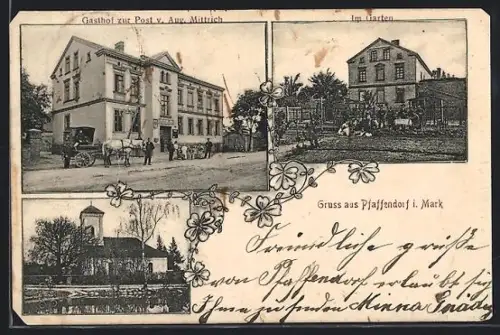 Gasthof zur Post v. Aug. Mittrich
Im Garten
Gruss aus Pfaffendorf i. Mark
Freundliche Grüße
von Pfaffendorf erlaubt sich
Ihne zu senden Minna